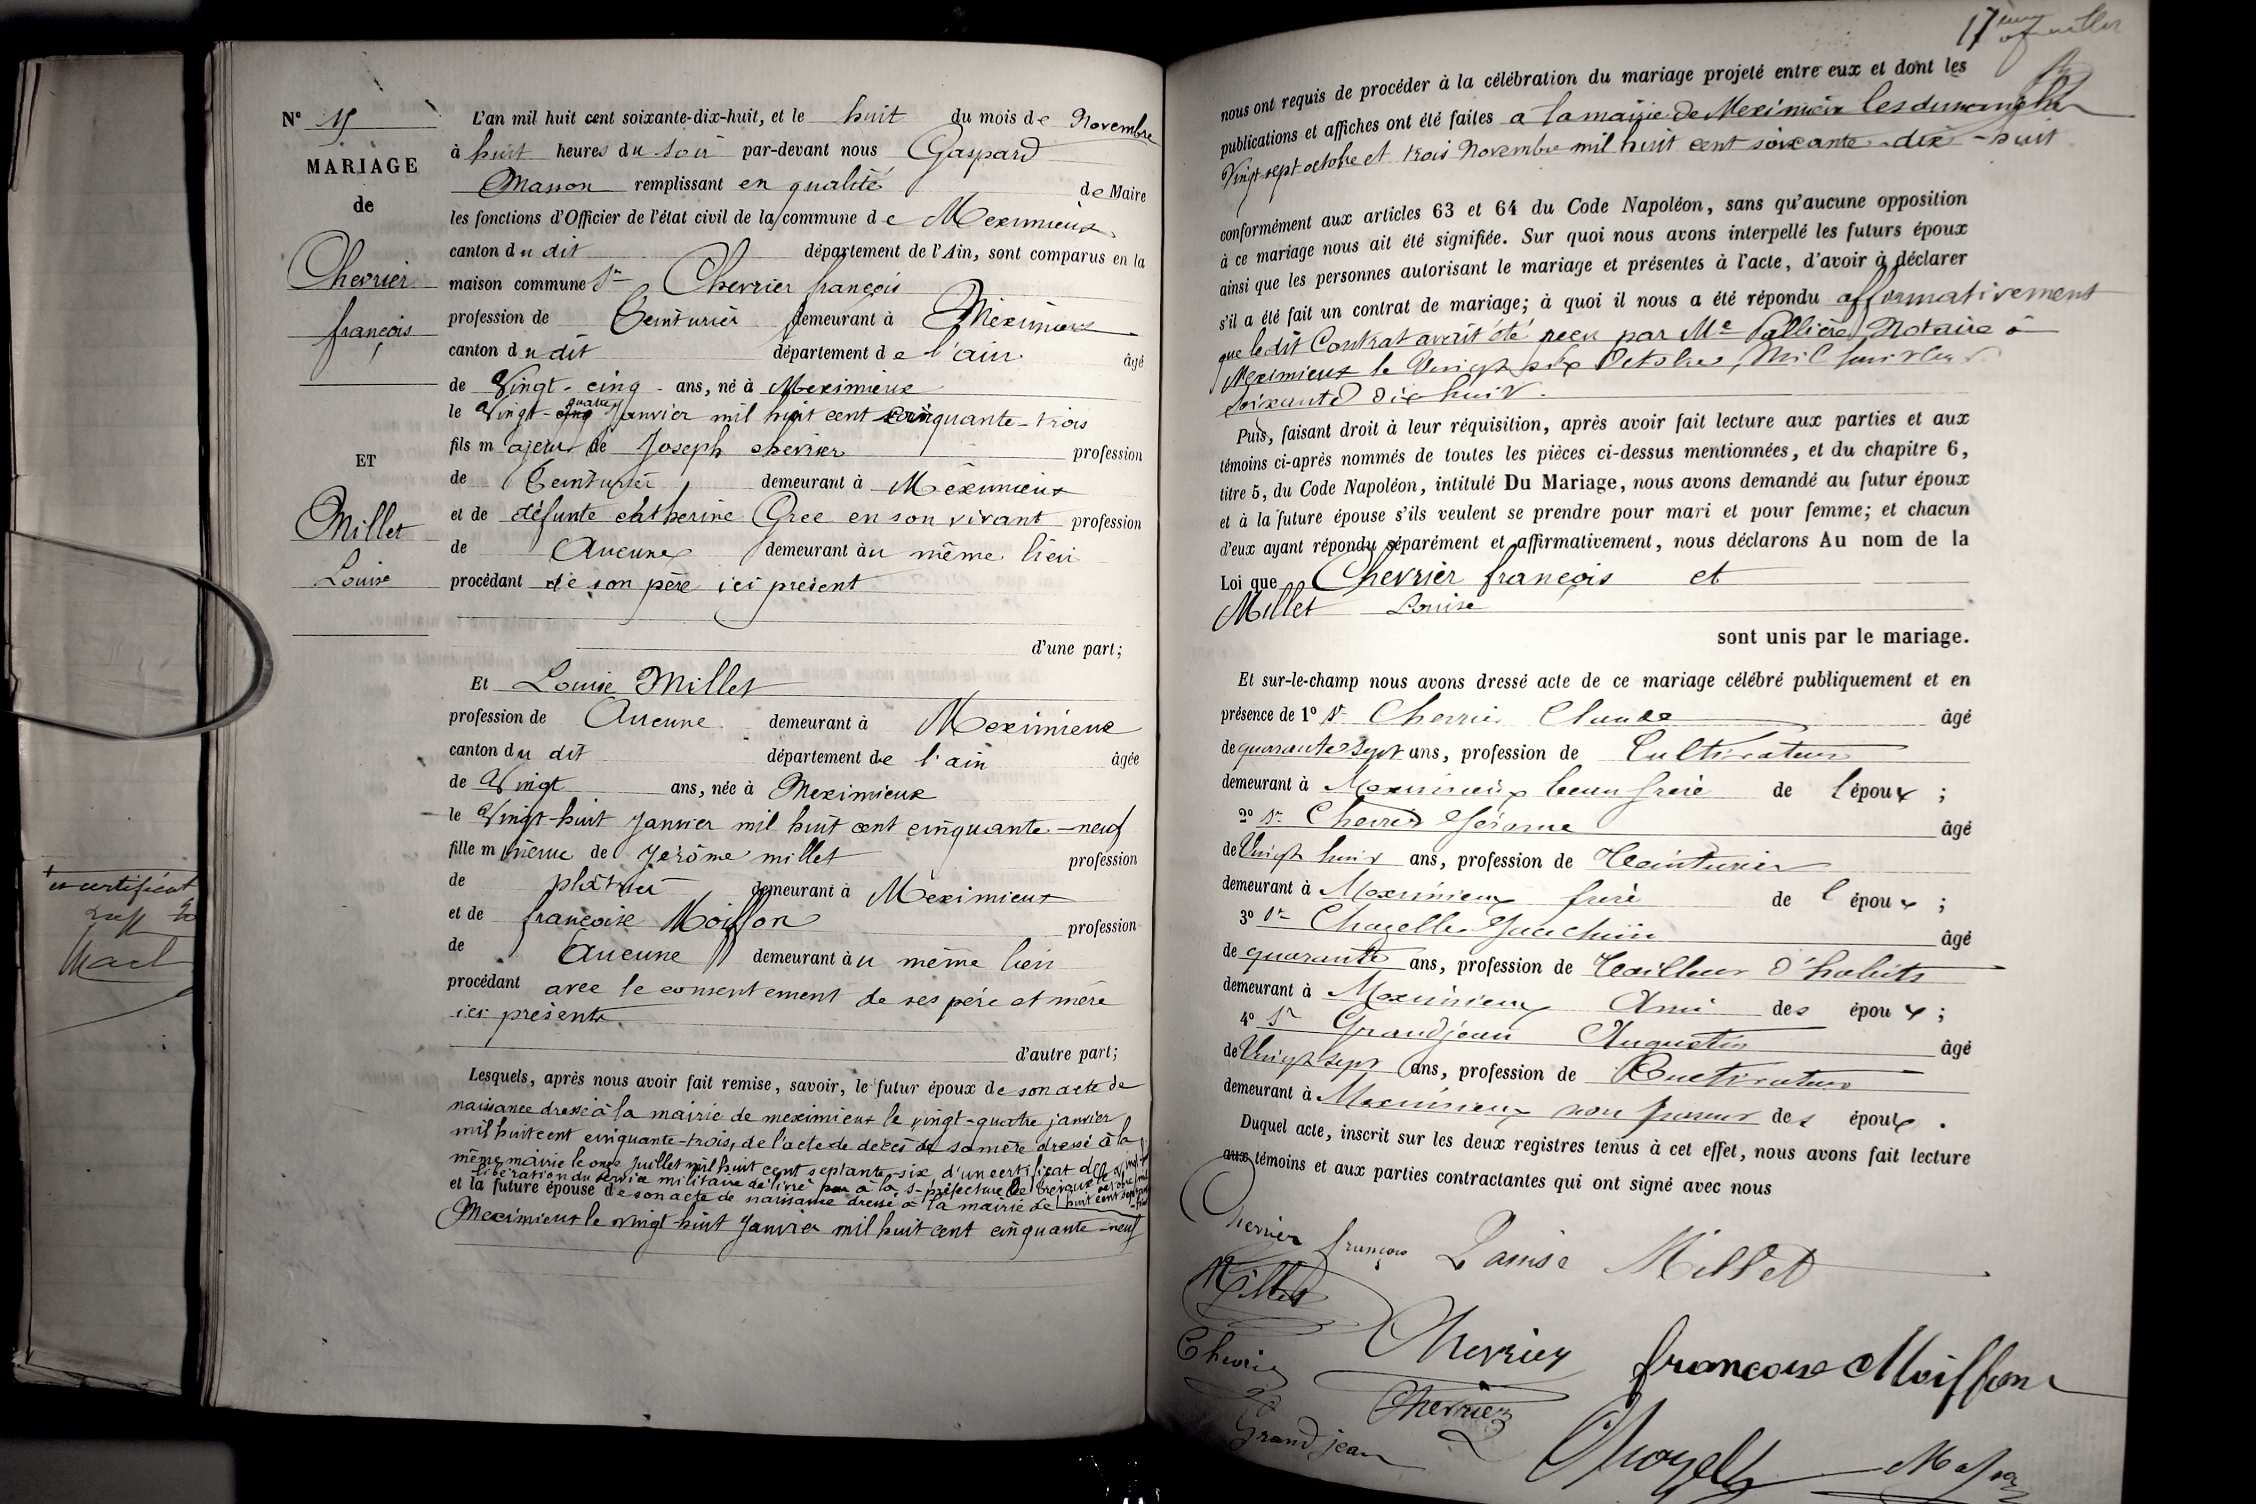 Nº 15
MARIAGE
de
Chevrier
françois
ET
Millet
Louise
L'an mil huit cent soixante-dix-huit, et le huit du mois de Novembre
à huit heures du soir par-devant nous Gaspard
Masson remplissant en qualité de Maire
les fonctions d'Officier de l'état civil de la commune de Meximieux
canton du dit département de l'Ain, sont comparus en la
maison commune Sr Chevrier françois
profession de Teinturier demeurant à Meximieux
canton du dit département de l'ain âgé
de Vingt-cinq ans, né à Meximieux
le Vingt-quatre Janvier mil huit cent cinquante-trois
fils majeur de Joseph chevrier profession
de Teinturier demeurant à Meximieux
et de défunte cathérine Gree en son vivant profession
de Aucune demeurant au même lieu
procédant de son père ici présent
d'une part;
Et Louise Millet
profession de Aucune demeurant à Meximieux
canton du dit département de l'ain âgée
de Vingt ans, née à Meximieux
le Vingt-huit Janvier mil huit cent cinquante-neuf
fille mineure de Jérôme millet profession
de plâtrier demeurant à Meximieux
et de françoise Moiffon profession
de Aucune demeurant au même lieu
procédant avec le consentement de ses père et mère
ici présents
d'autre part;
Lesquels, après nous avoir fait remise, savoir, le futur époux de son acte de
naissance dressé à la mairie de meximieux le vingt-quatre janvier
mil huit cent cinquante-trois, de l'acte de décès de sa mère dressé à la
même mairie le onze Juillet mil huit cent septante-six d'un certificat de
libération du service militaire délivré par à la s-préfecture de Trévoux le octobre mil
huit cent
et la future épouse de son acte de naissance dressé à la mairie de
Meximieux le vingt-huit Janvier mil huit cent cinquante-neuf
17ème feuillet
nous ont requis de procéder à la célébration du mariage projeté entre eux et dont les
publications et affiches ont été faites à la mairie de Meximieux les dimanches
Vingt-sept octobre et trois Novembre mil huit cent soixante-dix-huit
conformément aux articles 63 et 64 du Code Napoléon, sans qu'aucune opposition
à ce mariage nous ait été signifiée. Sur quoi nous avons interpellé les futurs époux
ainsi que les personnes autorisant le mariage et présentes à l'acte, d'avoir à déclarer
s'il a été fait un contrat de mariage; à quoi il nous a été répondu affirmativement
que le dit Contrat avait été reçu par Me Pallière, Notaire à
Meximieux le Vingt six Octobre, Mil huit cent
soixante dix huit.
Puis, faisant droit à leur réquisition, après avoir fait lecture aux parties et aux
témoins ci-après nommés de toutes les pièces ci-dessus mentionnées, et du chapitre 6,
titre 5, du Code Napoléon, intitulé Du Mariage, nous avons demandé au futur époux
et à la future épouse s'ils veulent se prendre pour mari et pour femme; et chacun
d'eux ayant répondu séparément et affirmativement, nous déclarons Au nom de la
Loi que Chevrier françois et
Millet Louise
sont unis par le mariage.
Et sur-le-champ nous avons dressé acte de ce mariage célébré publiquement et en
présence de 1º Sr Chevrier Claude âgé
de quarante sept ans, profession de Cultivateur
demeurant à Meximieux beau frère de l'époux ;
2º Sr Chevrier Jérome âgé
de Vingt huit ans, profession de Teinturier
demeurant à Meximieux frère de l'époux ;
3º Sr Chazelle Joachim âgé
de quarante ans, profession de Tailleur d'habits
demeurant à Meximieux Ami des époux ;
4º Sr Grandjean Augustin âgé
de Vingt sept ans, profession de Cultivateur
demeurant à Meximieux non parent des époux .
Duquel acte, inscrit sur les deux registres tenus à cet effet, nous avons fait lecture
aux témoins et aux parties contractantes qui ont signé avec nous
Chevrier françois Louise Millet
Millet
Chevrier françoise Moiffon
Chevrier
Chevrier
Grandjean
Chazelle Masson